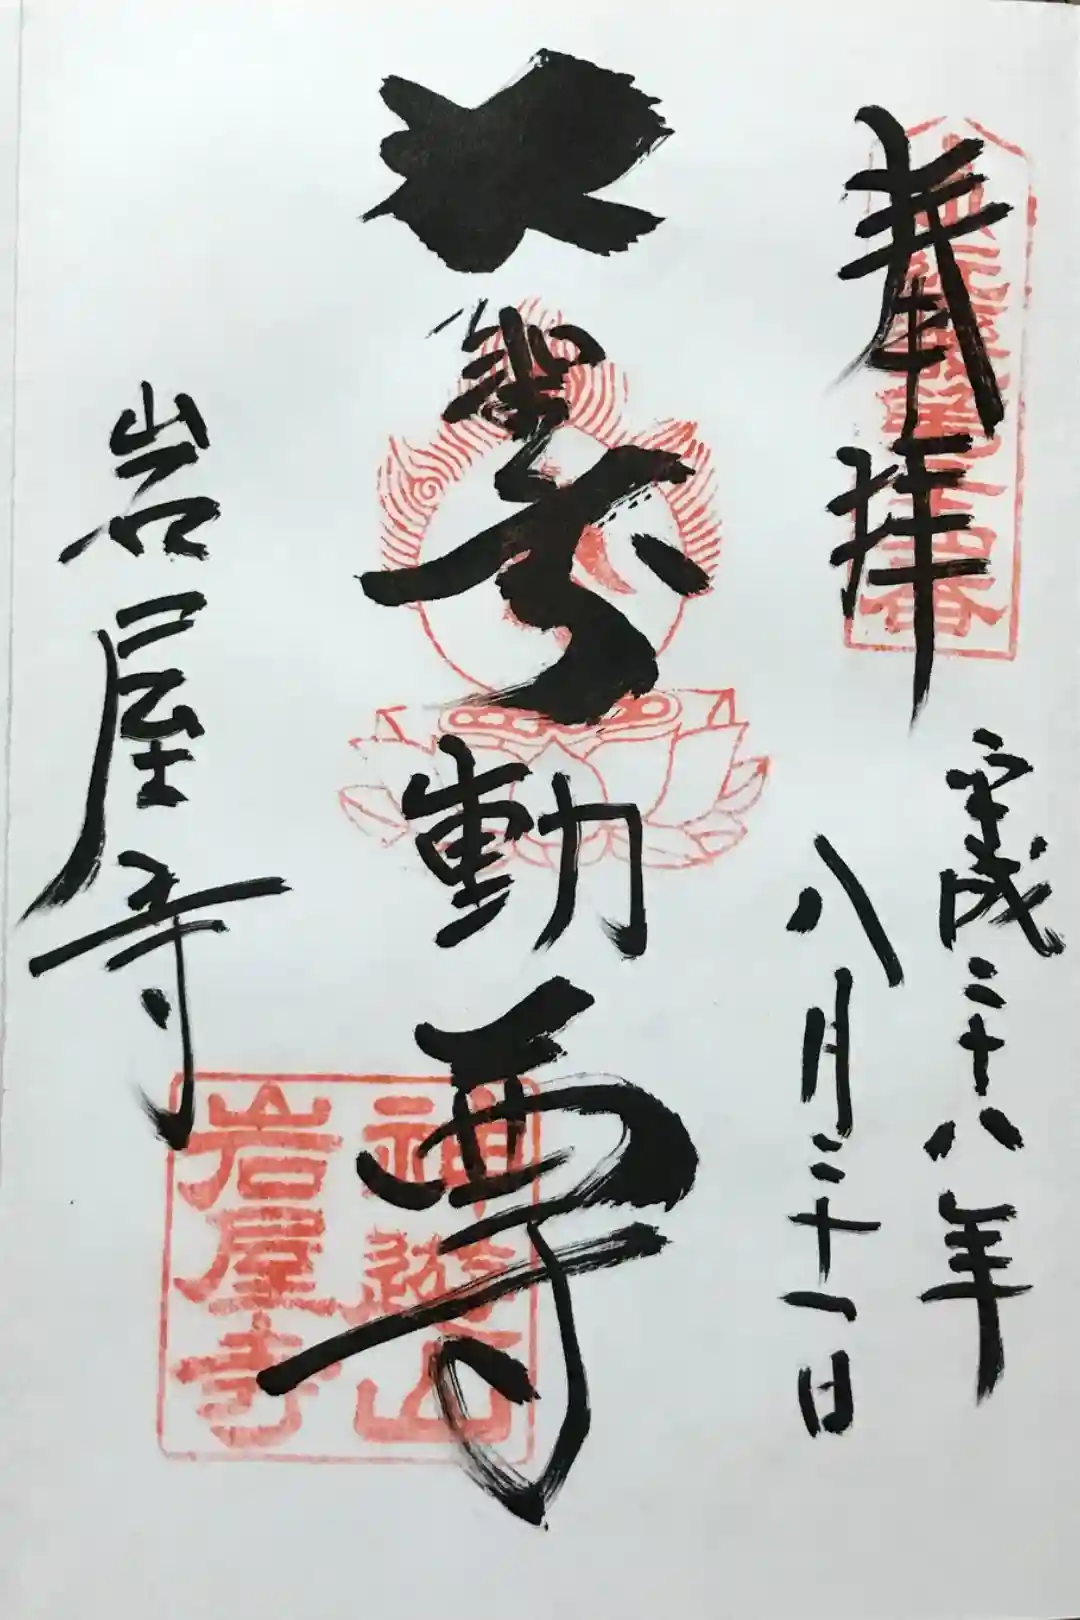 奉拝
平成二十八年
八月二十一日
大聖不動尊
岩屋寺
神遊山
岩屋寺